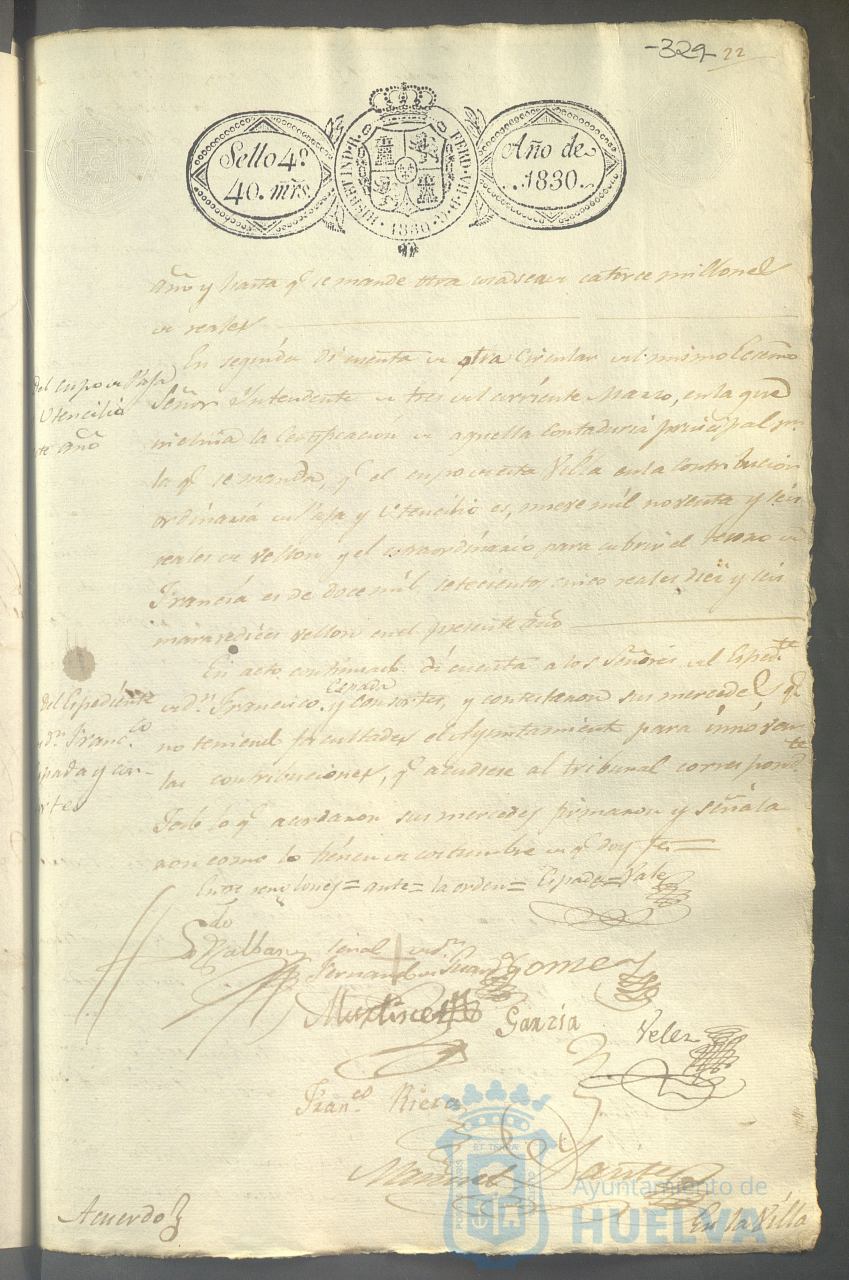 -329- 22
Sello 4º
40. mrs.
HISP. ET IND. R. FERD. VII. D. G. 1830
Año de
1830.
año y hasta qe. se mande otra cosa sea de catorce millones
de reales
En seguida di cuenta de otra Circular del mismo Ecsmo
Señor Yntendente de tres del corriente Marzo, en la que
la Certificacion de aquella Contaduria principal
la qe. se manda, qe. el cupo de esta Villa en la contribucion
ordinaria de Paja y Utencilio es, nueve mil noventa y seis
reales de vellon y el estraordinario para cubrir el tesoro de
Francia es de doce mil setecientos cinco reales diez y seis
maravedices vellon en el presente año
En acto continuado di cuenta a los Señores del Espedte.
de dn. Francisco Espada y consortes, y contestaron sus mercedes qe.
no teniend facultades el Ayuntamiento para innovar
las contribuciones, qe. acudiese al tribunal correspondte.
Todo lo qe. acordaron sus mercedes firmaron y señala
ron como lo tienen de costumbre de qe. doy fe=
Entre renglones= ante= la orden= Espada= Vale
del cupo de Paja
Utencilio
año
del Espediente
de dn. Franco.
Espada y con-
sortes
señal de dn.
Fernando Gomez
Martinez Garzia Velez
Franco. Riera
Manuel
Acuerdo
En la Villa
Ayuntamiento de
HUELVA